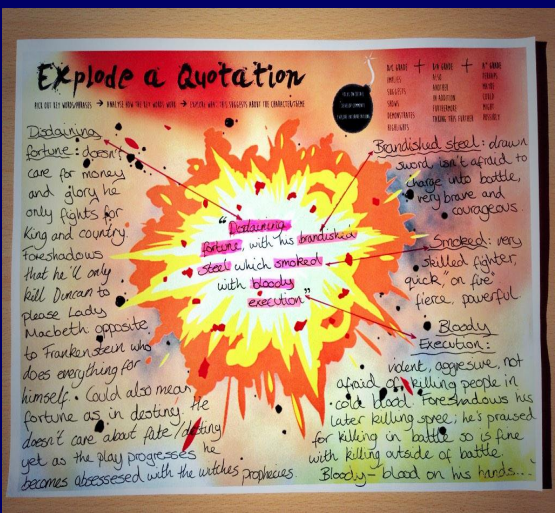 Explode a Quotation
PICK OUT KEY WORDS/PHRASES → ANALYSE HOW THE KEY WORDS WORK → EXPLORE WHAT THIS SUGGESTS ABOUT THE CHARACTER/THEME
D/C GRADE + B/A GRADE + A* GRADE
IMPLIES ALSO PERHAPS
SUGGESTS ANOTHER MAYBE
SHOWS IN ADDITION COULD
DEMONSTRATES FURTHERMORE MIGHT
HIGHLIGHTS TAKING THIS FURTHER POSSIBLY
Disdaining
fortune: doesn't
care for money
and glory he
only fights for
King and country.
Foreshadows
that he'll only
kill Duncan to
please Lady
Macbeth: opposite
to Frankenstein who
does everything for
himself. Could also mean
fortune as in destiny. He
doesn't care about fate/destiny
yet as the play progresses he
becomes obsessesed with the witches prophecies.
"Disdaining
fortune, with his brandished
steel which smoked
with bloody
execution"
Brandished steel: drawn
sword, isn't afraid to
charge into battle,
very brave and
courageous.
Smoked: very
skilled fighter,
quick, "on fire"
fierce, powerful.
Bloody
Execution:
violent, aggresive, not
afraid of killing people in
cold blood. Foreshadows his
later killing spree; he's praised
for killing in battle so is fine
with killing outside of battle.
Bloody - blood on his hands...